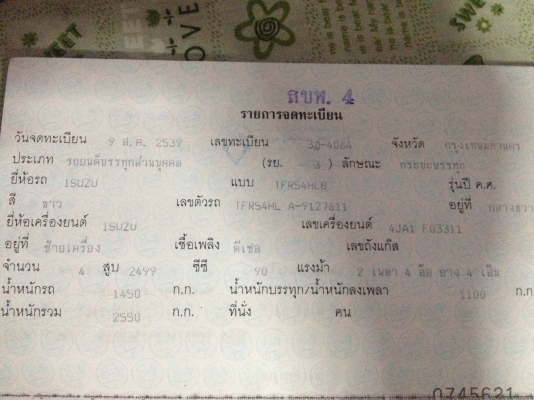 SWEET
LOVE
สขพ. 4
รายการจดทะเบียน
วันจดทะเบียน 9 ส.ค. 2539 เลขทะเบียน 30-4064 จังหวัด กรุงเทพมหานคร
ประเภท รถยนต์บรรทุกส่วนบุคคล (รย. 3) ลักษณะ กระบะบรรทุก
ยี่ห้อรถ ISUZU แบบ TFR54HLB รุ่นปี ค.ศ.
สี ขาว เลขตัวรถ TFR54HL A-9127611 อยู่ที่ กลางขวา
ยี่ห้อเครื่องยนต์ ISUZU เลขเครื่องยนต์ 4JA1 E03311
อยู่ที่ ซ้ายเครื่อง เชื้อเพลิง ดีเซล เลขถังแก๊ส
จำนวน 4 สูบ 2499 ซีซี 90 แรงม้า 2 เพลา 4 ล้อ ยาง 4 เส้น
น้ำหนักรถ 1450 ก.ก. น้ำหนักบรรทุก/น้ำหนักลงเพลา 1100 ก.ก
น้ำหนักรวม 2550 ก.ก. ที่นั่ง คน
0745621